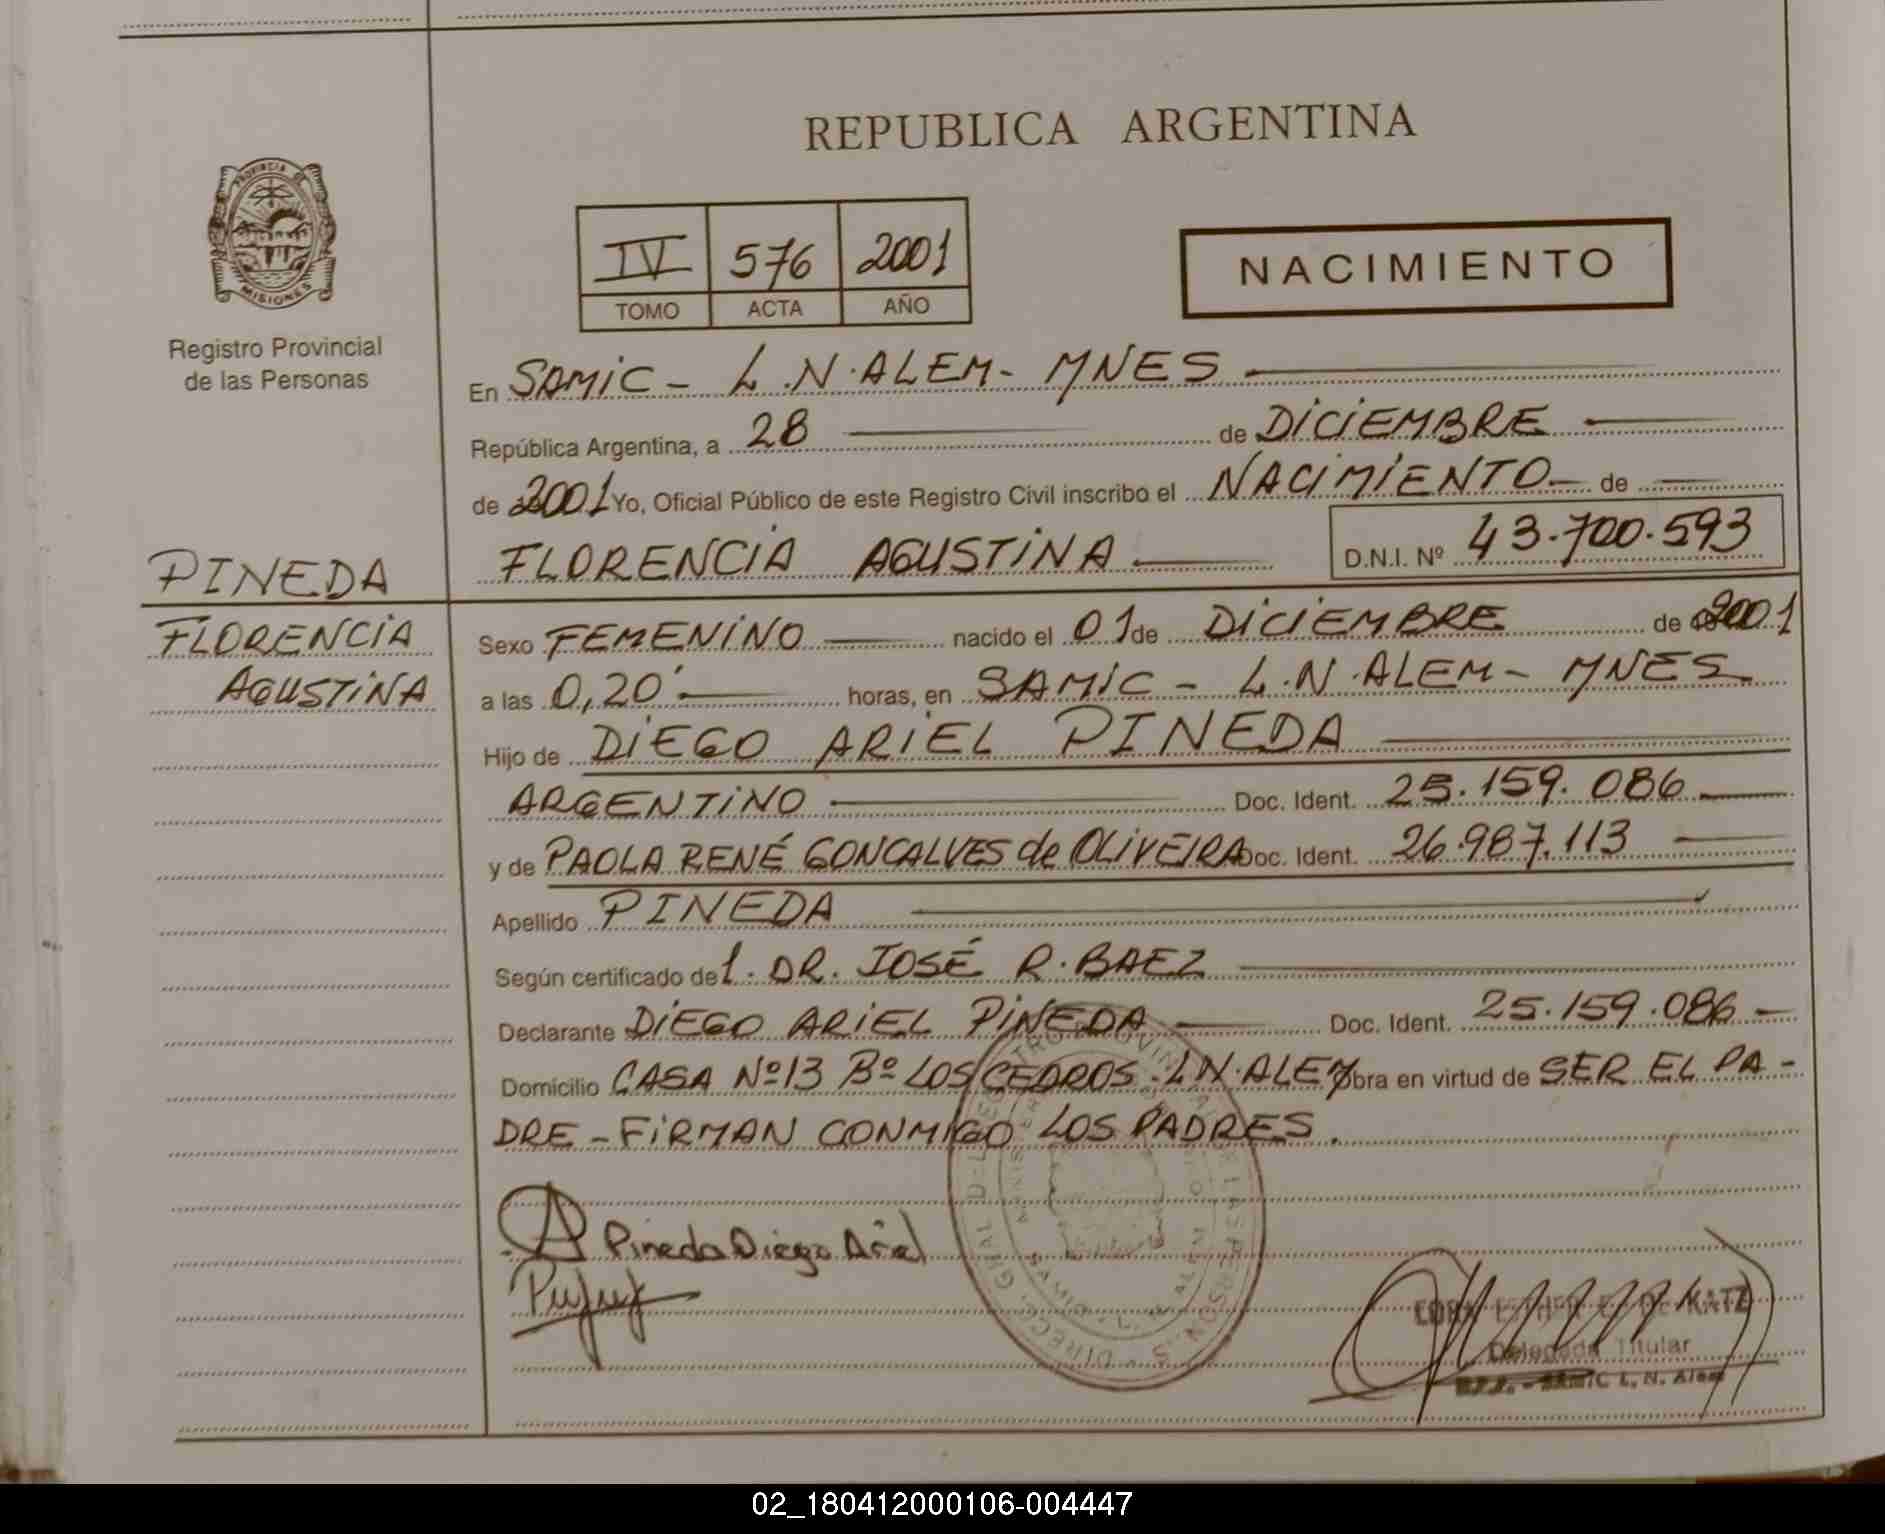 REPUBLICA ARGENTINA
PROVINCIA DE
MISIONES
Registro Provincial
de las Personas
IV 576 2001
TOMO ACTA AÑO
NACIMIENTO
En SAMIC - L.N.ALEM - MNES
República Argentina, a 28 de DICIEMBRE
de 2001 Yo, Oficial Público de este Registro Civil inscribo el NACIMIENTO de
PINEDA
FLORENCIA AGUSTINA D.N.I. Nº 43.700.593
FLORENCIA
AGUSTINA
Sexo FEMENINO nacido el 01 de DICIEMBRE de 2001
a las 0,20' horas, en SAMIC - L.N.ALEM - MNES
Hijo de DIEGO ARIEL PINEDA
ARGENTINO Doc. Ident. 25.159.086
y de PAOLA RENÉ GONCALVES de OLIVEIRA Doc. Ident. 26.987.113
Apellido PINEDA
Según certificado de 1. DR. JOSÉ R. BAEZ
Declarante DIEGO ARIEL PINEDA Doc. Ident. 25.159.086
Domicilio CASA Nº13 Bº LOS CEDROS - L.N.ALEM obra en virtud de SER EL PA-
DRE - FIRMAN CONMIGO LOS PADRES.
Pineda Diego Ariel
KATZ
Delegada Titular
SAMIC L. N. Alem
02_180412000106-004447